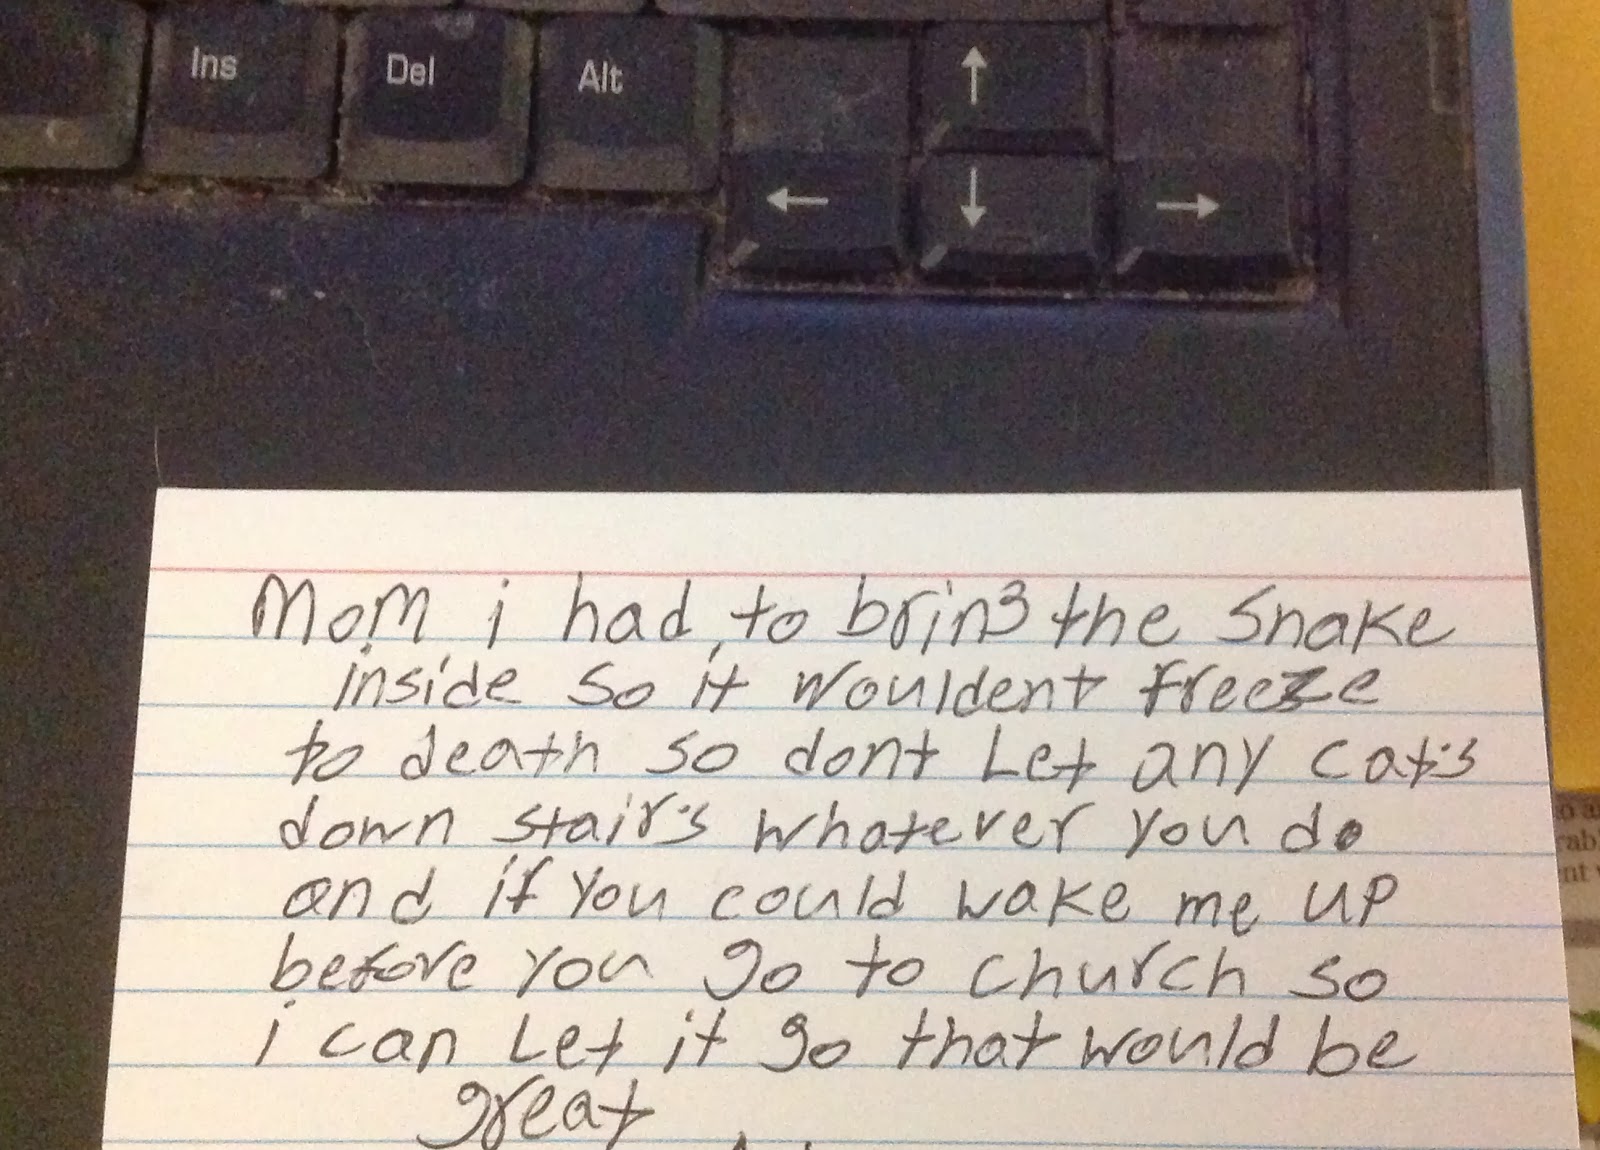 Ins Del Alt ↑
← ↓ →
Mom i had to bring the snake
inside so it wouldent freeze
to death so dont Let any cat's
down stair's whatever you do
and if you could wake me up
before you go to church so
i can Let it go that would be
great